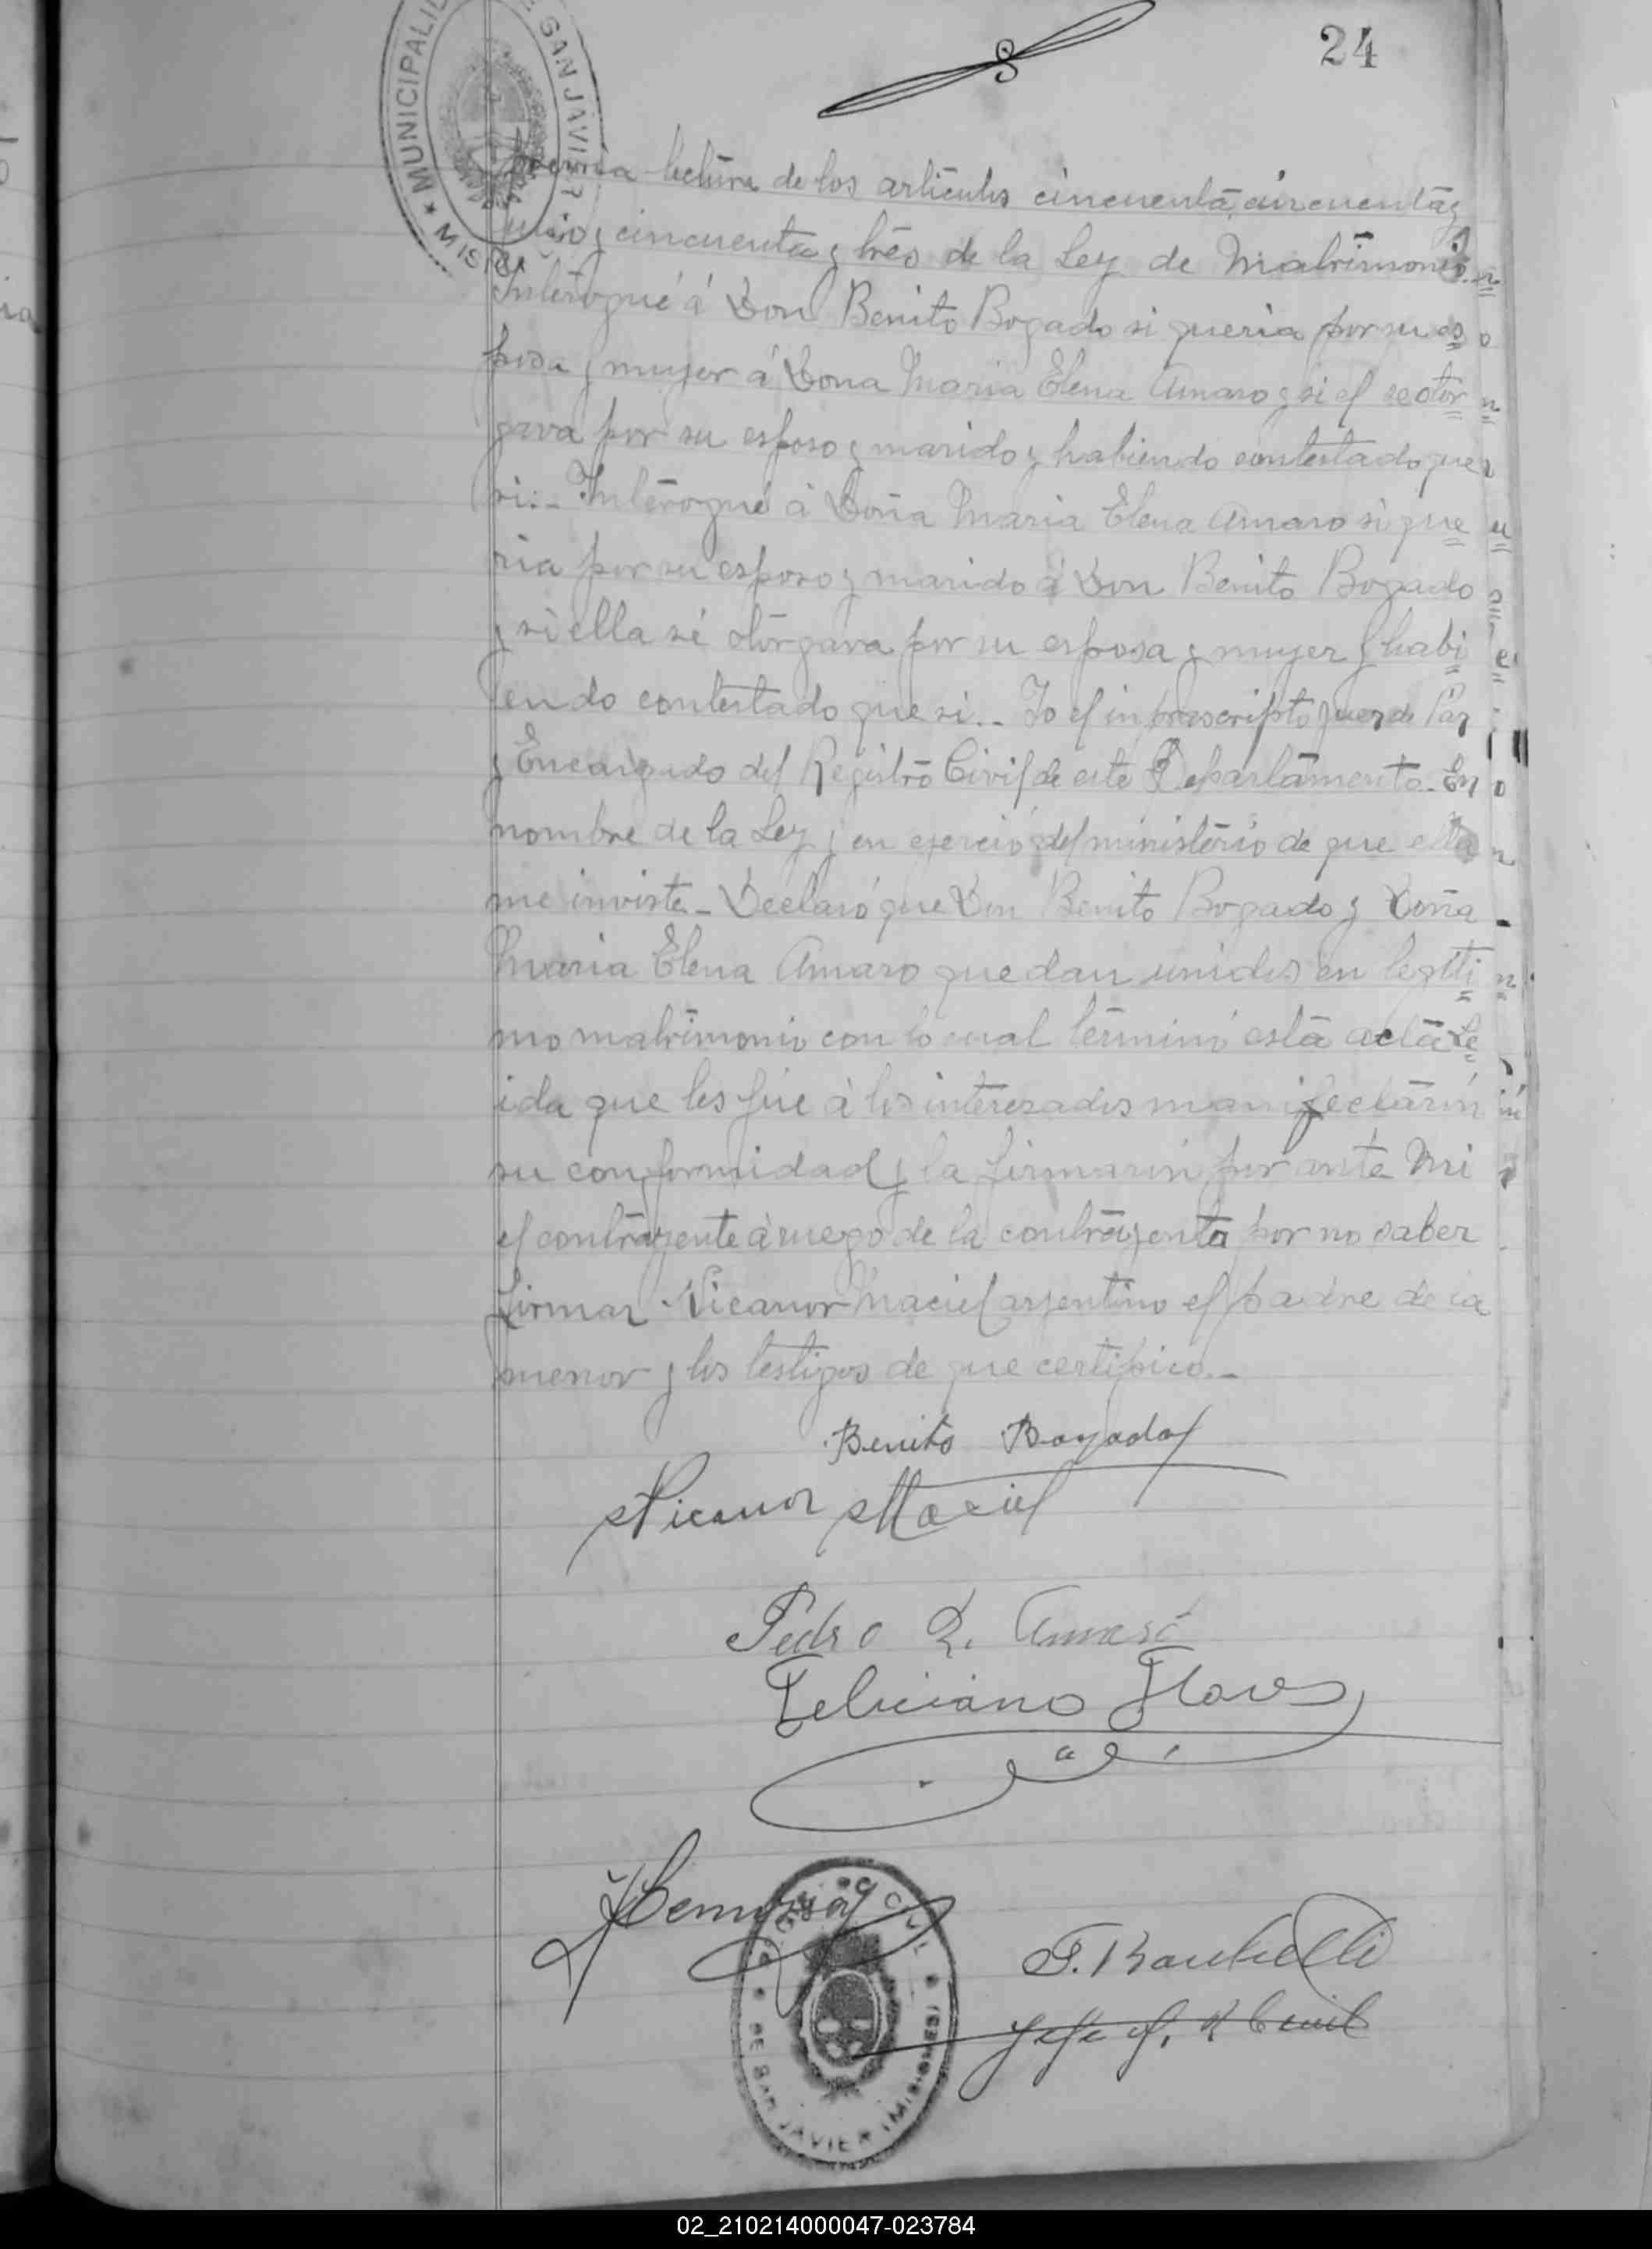 24
MUNICIPALI
E SAN JAVIER
MIS
previa lectura de los articulos cincuenta, cincuenta y
uno y cincuenta y tres de la Ley de Matrimonio.
Interogué á Don Benito Bogado si queria por su es
posa y muger á Dona Maria Elena Amaro y si el se otor
gava por su esposo y marido y habiendo contestado que
si:- Interogué á Doña Maria Elena Amaro si que
ria por su esposo y marido á Don Benito Bogado
y si ella sé otorgava por su esposa y muger y habi
endo contestado que si.- Yo el inprescripto Juez de Paz
y Encargado del Registro Civil de este Departamento. En
nombre de la Ley y en ejercio del ministerio de que ella
me inviste- Declaró que Don Benito Bogado y Doña
Maria Elena Amaro quedan unidos en legiti
mo matrimonio con lo cual terminó esta acta Le
ida que les fue á los interezados manifectarón
su conformidad y la firmarón por ante Mi
el contrayente á ruego de la contrayenta por no saber
firmar Nicanor Maciel argentino el padre de la
menor y los testigos de que certifico.-
Benito Bogado
Nicanor Maciel
Pedro R. Amaro
Feliciano Flores
CIVIL
DE SAN JAVIER (MISIONES)
02_210214000047-023784